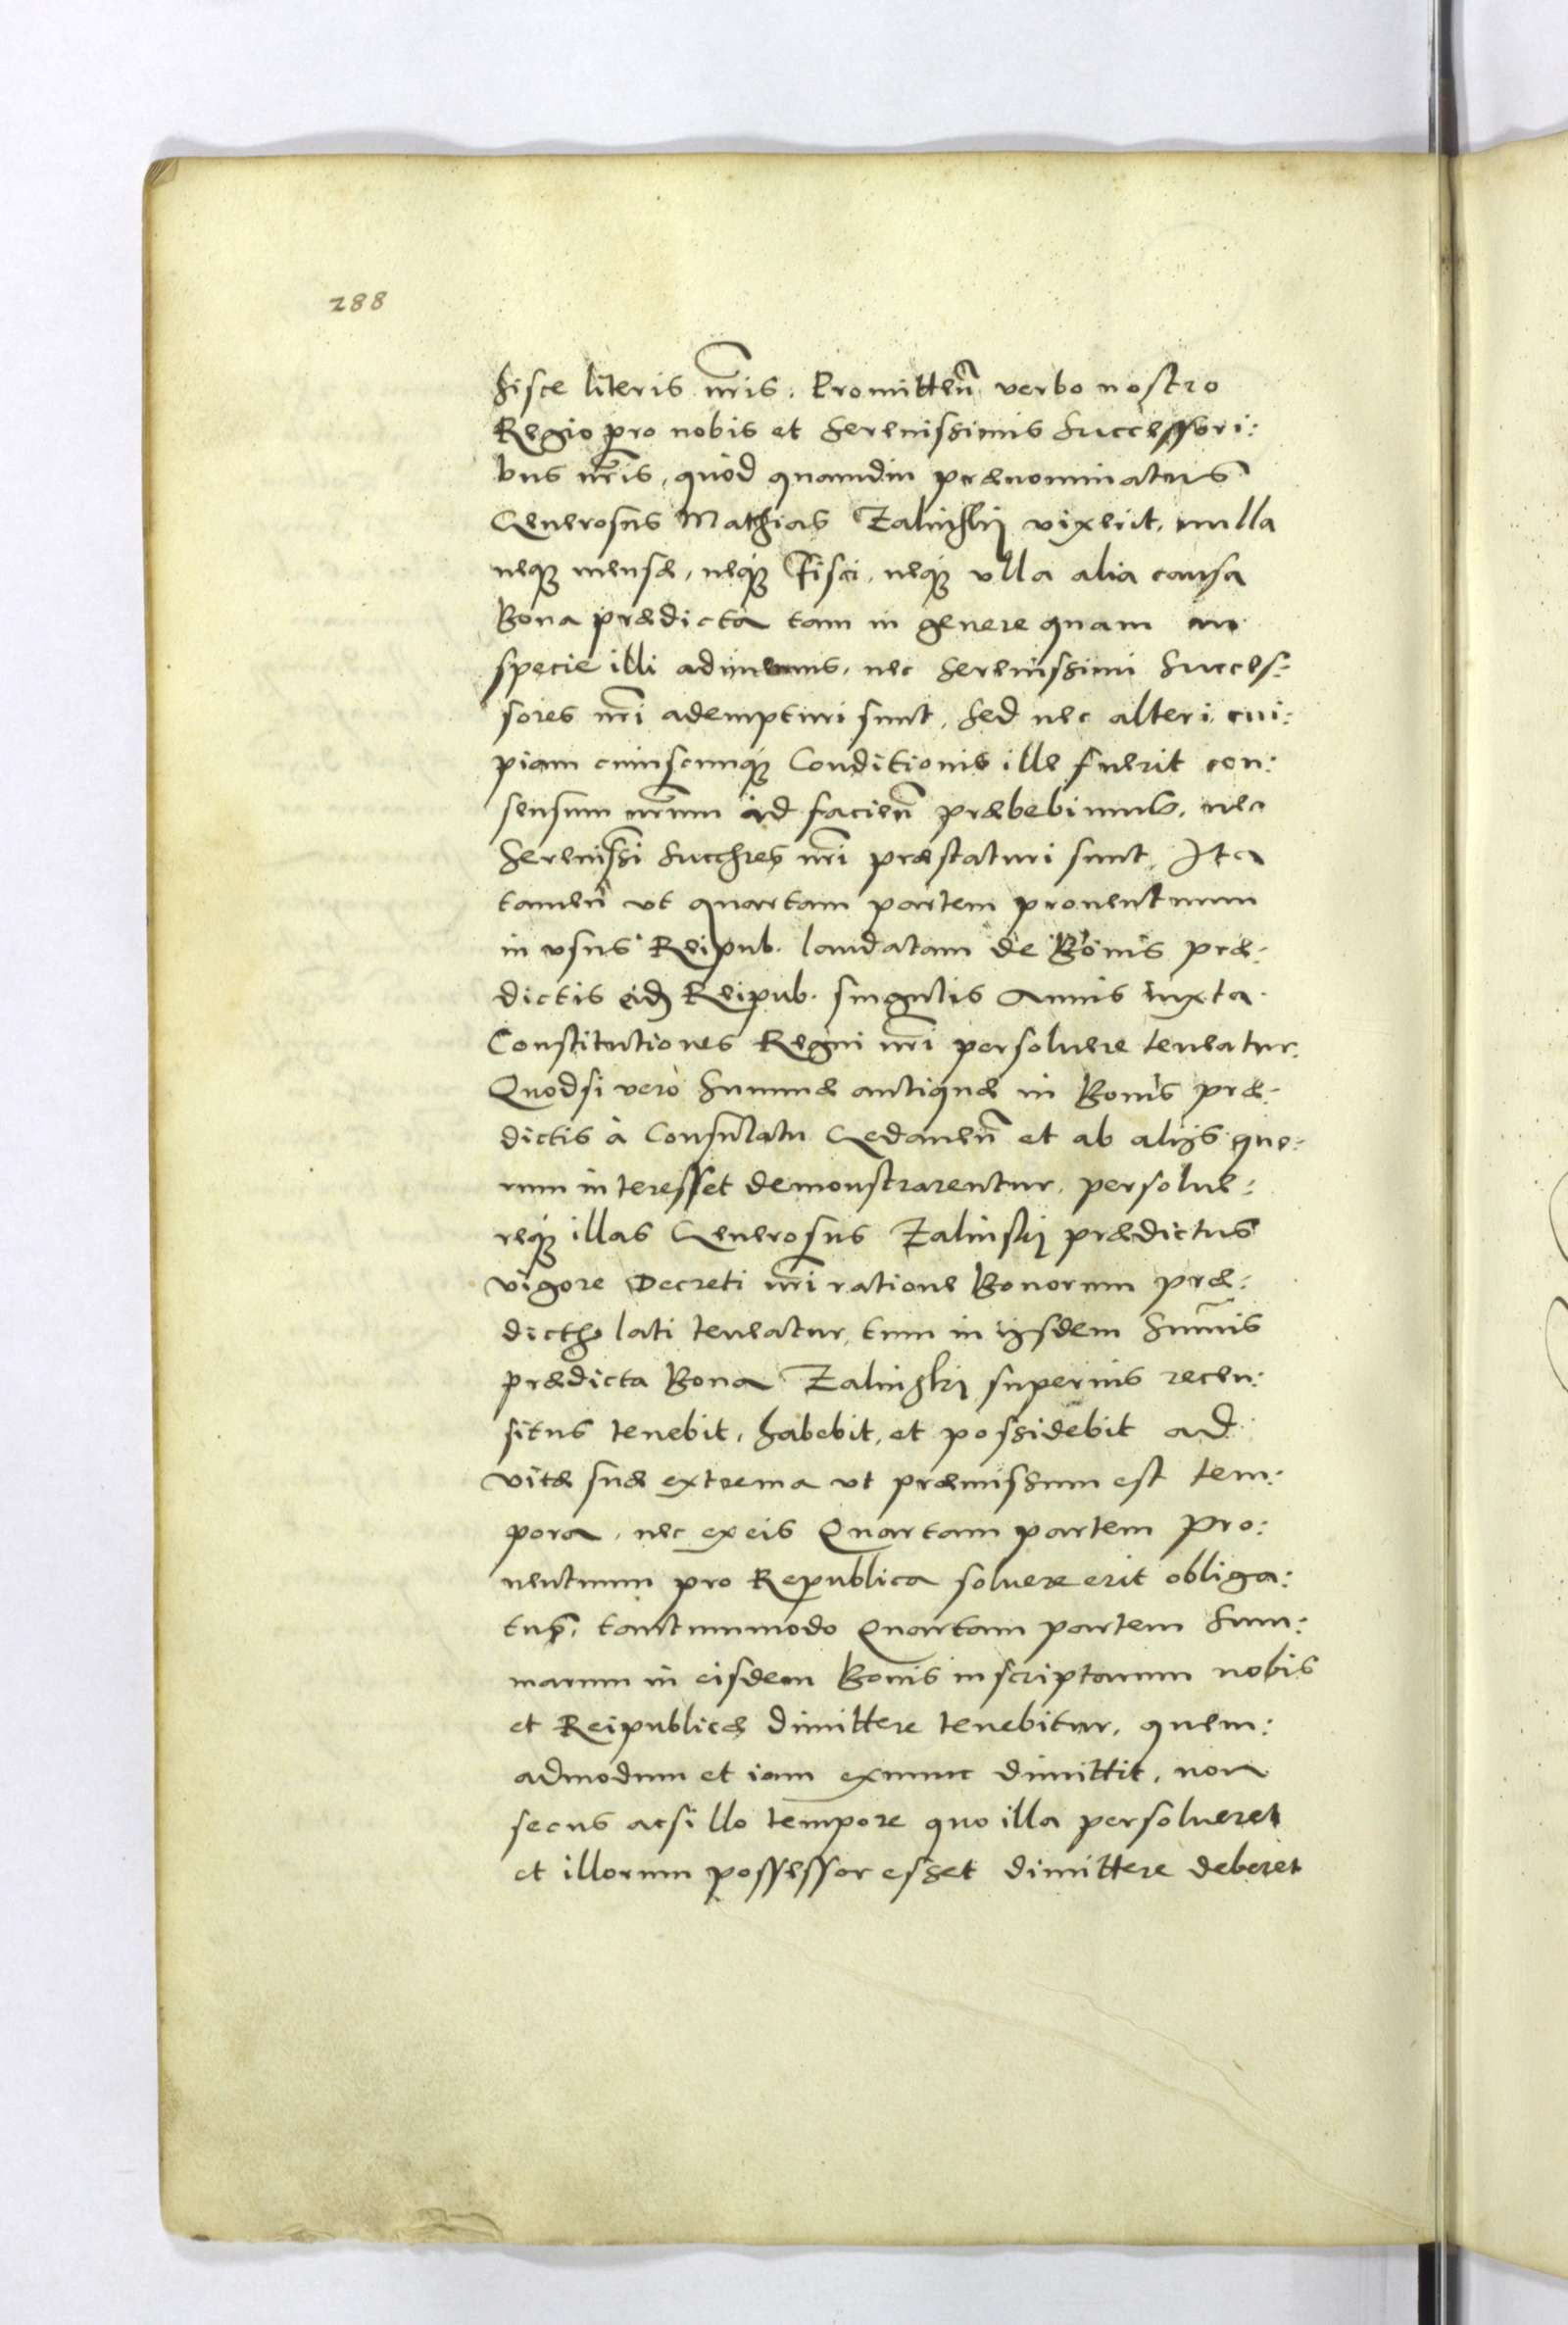 288
hisce literis nr̃is. Promitteñ verbo nostro
Regio pro nobis et Serenissimis Successori:
bus nr̃is, quòd quamdiu prænominatus
Generosus Mathias Zalinskij vixerit, nulla
neq3 mensæ, neq3 Fisci, neq3 ulla alia causa
Bona prædicta tam in genere quam in
specie illi adimemus, nec Serenissimi Succes:
sores nr̃i adempturi sunt, Sed nec alteri cui:
piam cuiuscunq3 Conditionis ille fuerit con:
sensum nr̃um id facieñ præbebimus, nec
Sereniss̃i Succ̃res nr̃i præstaturi sunt. Ita
tameñ ut quartam partem prouentuum
in usus Reipub. laudatam de Bonis præ:
dictis eid Reipub. singulis Annis iuxta
Constitutiones Regni nr̃i persoluere teneatur.
Quodsi verò Summæ antiquæ in Bonis præ:
dictis à Consulatu Gedaneñ et ab alijs quo:
rum interesset demonstrarentur, persolue:
req3 illas Generosus Zalinskij prædictus
vigore Decreti nr̃i ratione Bonorum præ:
dictor lati teneatur, tum in ijsdem Sum̃is
prædicta Bona Zalinskij superius recen:
situs tenebit, habebit, et possidebit ad
vitæ suæ extrema ut præmissum est tem:
pora, nec ex eis Quartam partem Pro:
uentuum pro Republica soluere erit obliga:
tus, tantummodo Quartam partem Sum:
marum in eisdem Bonis inscriptarum nobis
et Reipublicæ dimittere tenebitur, quem:
admodum et iam exnunc dimittit, non
secus acsi llo tempore quo illa persolueret
et illorum possessor esset dimittere deberet